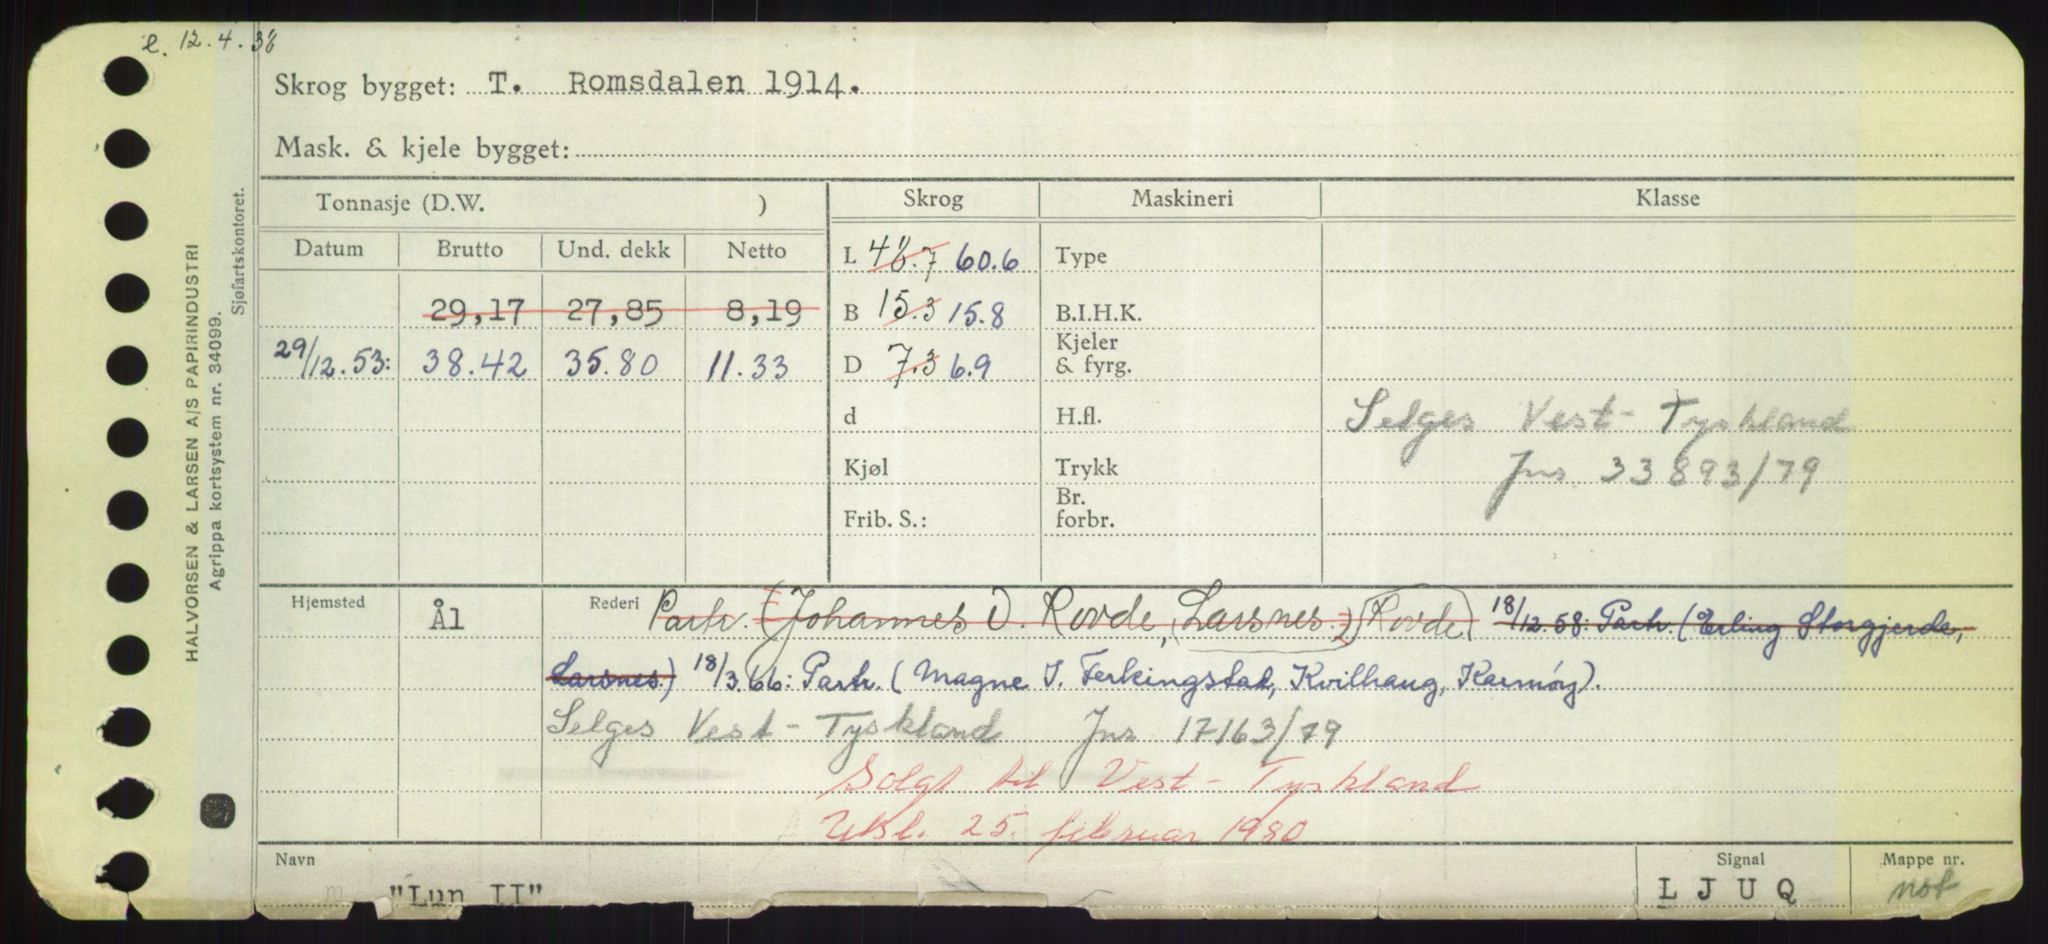 e. 12.4.38
Skrog bygget: T. Romsdalen 1914.
Mask. & kjele bygget:
Tonnasje (D.W. ) Skrog Maskineri Klasse
Datum Brutto Und. dekk Netto
L 48.7 60.6 Type
29,17 27,85 8,19 B 15.3 15.8 B.I.H.K.
29/12.53: 38.42 35.80 11.33 D 7.3 6.9 Kjeler & fyrg.
d H.fl. Selges Vest-Tyskland
Kjøl Trykk Jnr. 33893/79
Frib. S.: Br. forbr.
Hjemsted Ål Rederi Partr. (Johannes O. Rovde, Larsnes.) (Rovde) 18/12.58: Partr. (Erling Storgjerde,
Larsnes.) 18/3.66: Partr. (Magne I. Ferkingstad, Kvilhaug, Karmøy).
Selges Vest-Tyskland Jnr 17163/79
Solgt til Vest-Tyskland
Utsl. 25. februar 1980
Navn "Lun II" Signal L J U Q Mappe nr. not
HALVORSEN & LARSEN A/S PAPIRINDUSTRI
Agrippa kortsystem nr. 34099.
Sjøfartskontoret.